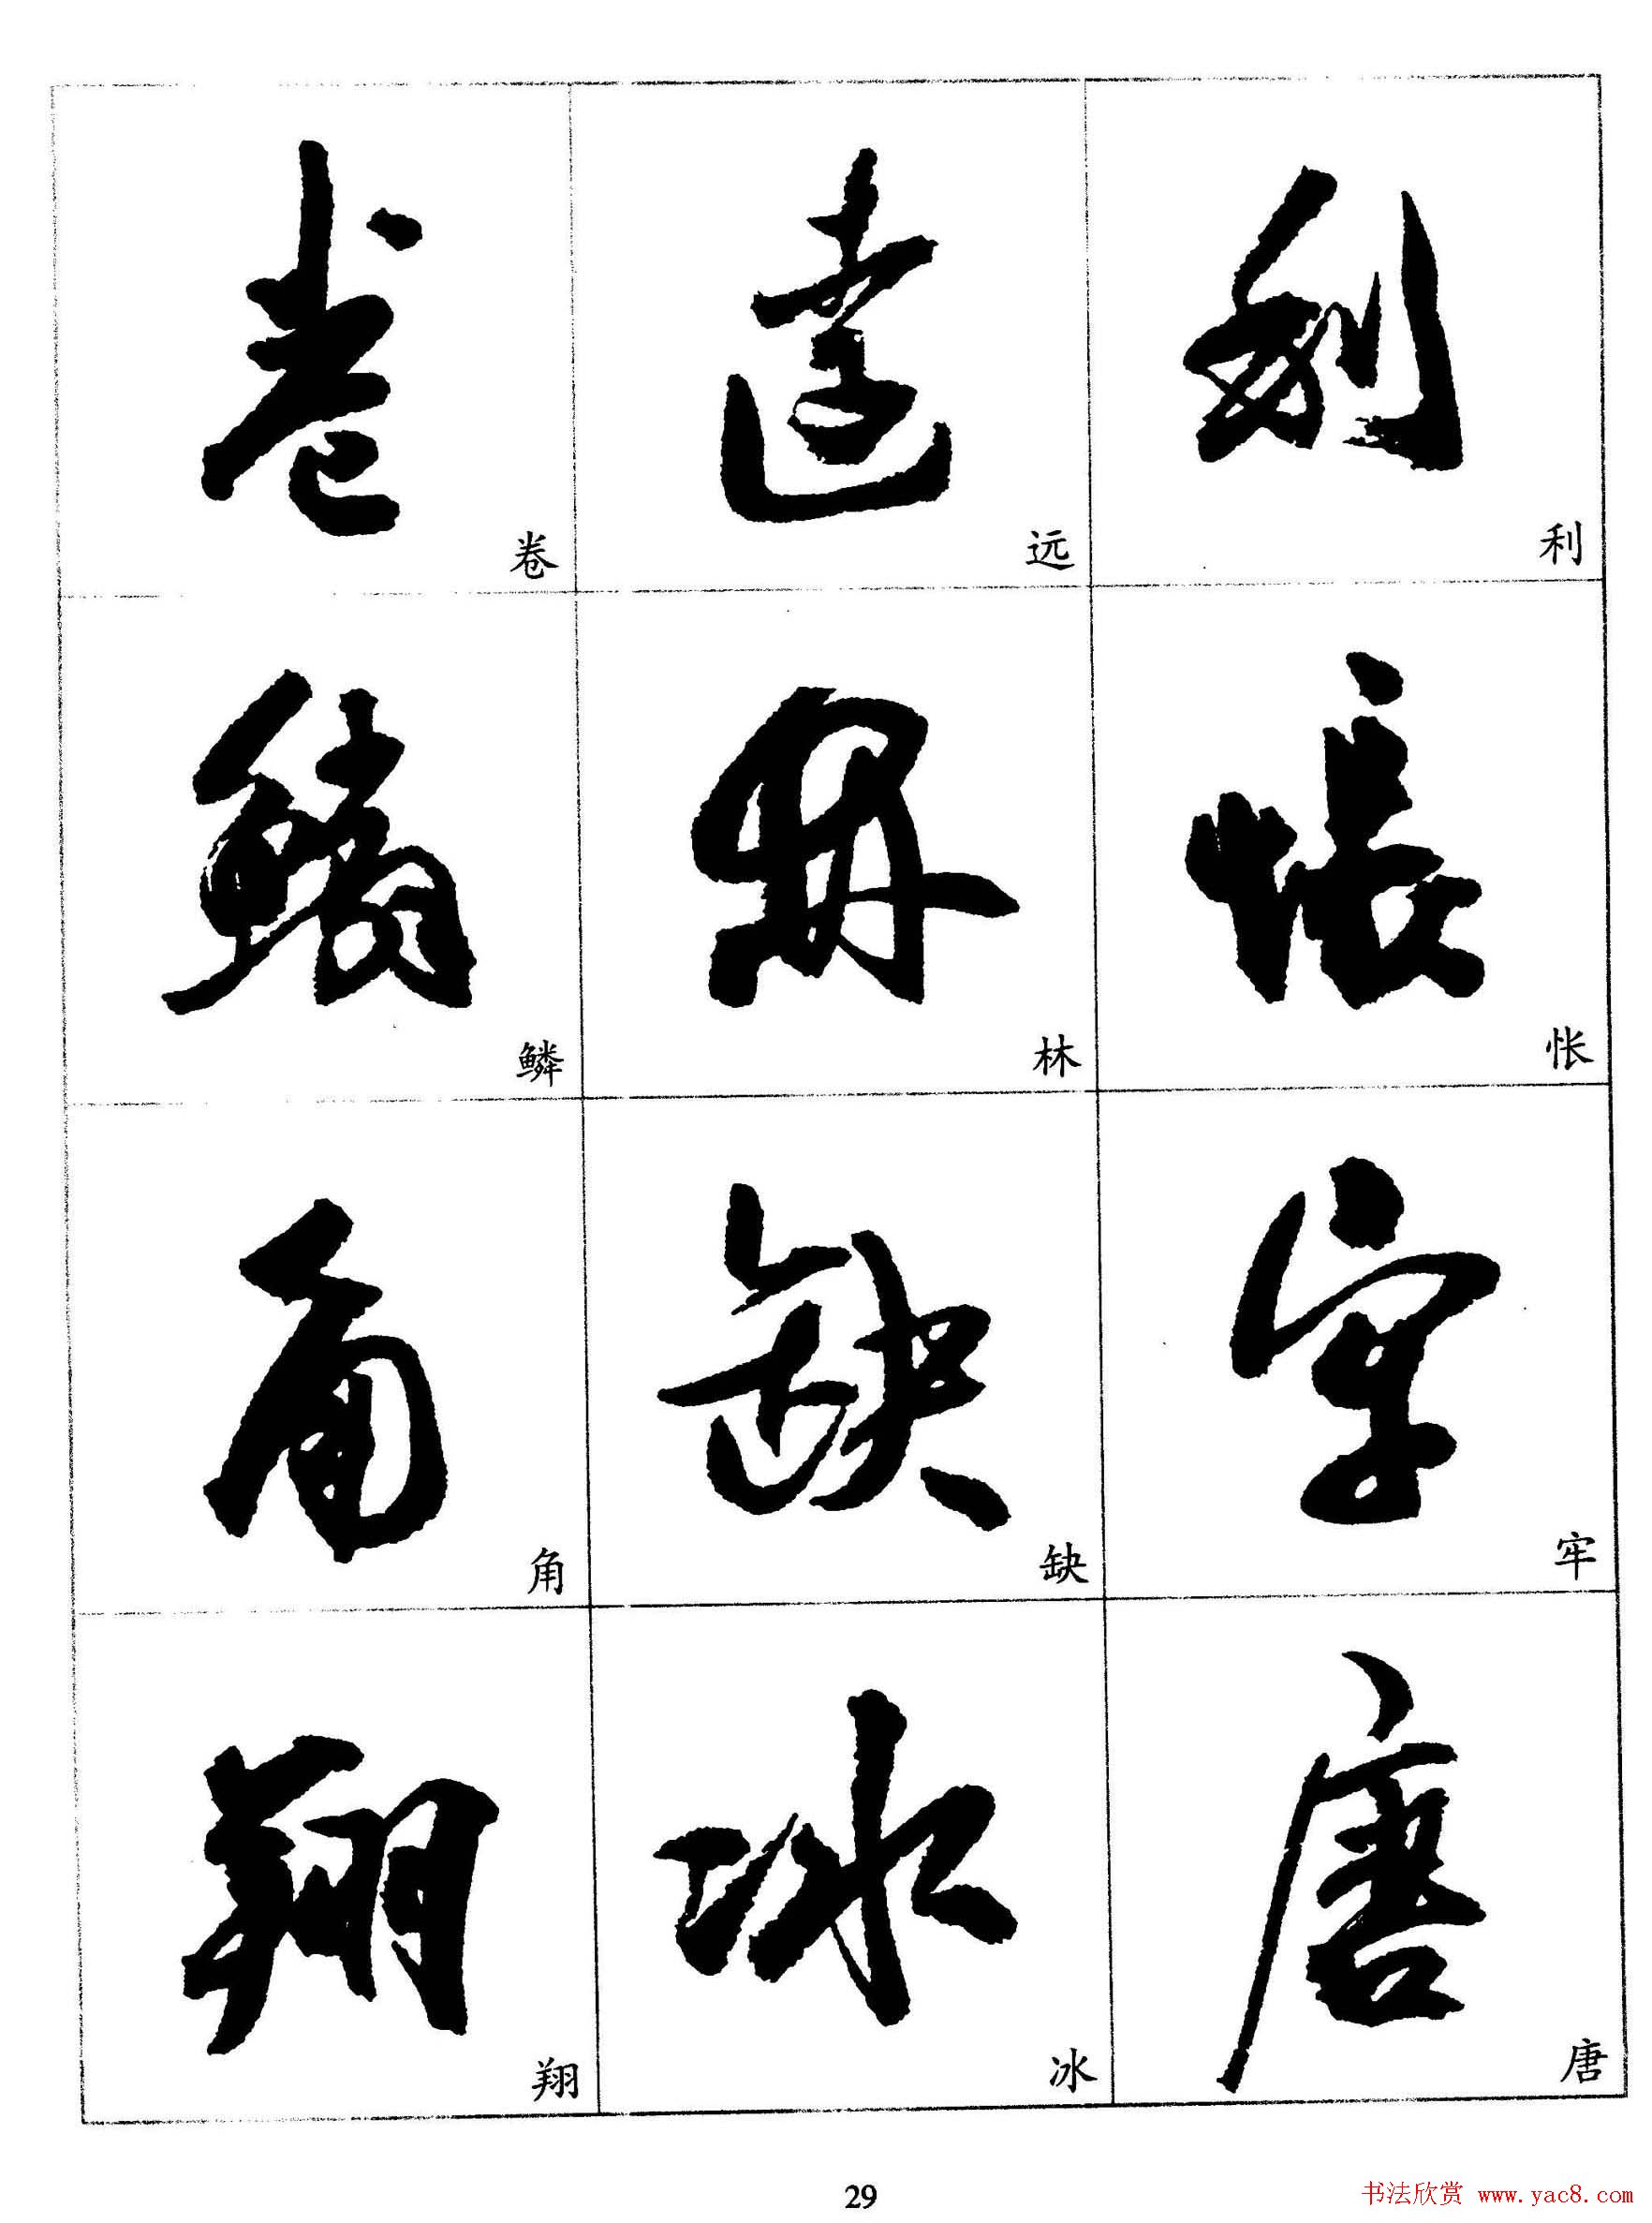 卷 遠 利
卷 远 利
鱗 林 悵
鳞 林 怅
角 缺 牢
角 缺 牢
翔 冰 唐
翔 冰 唐
29
书法欣赏 www.yac8.com